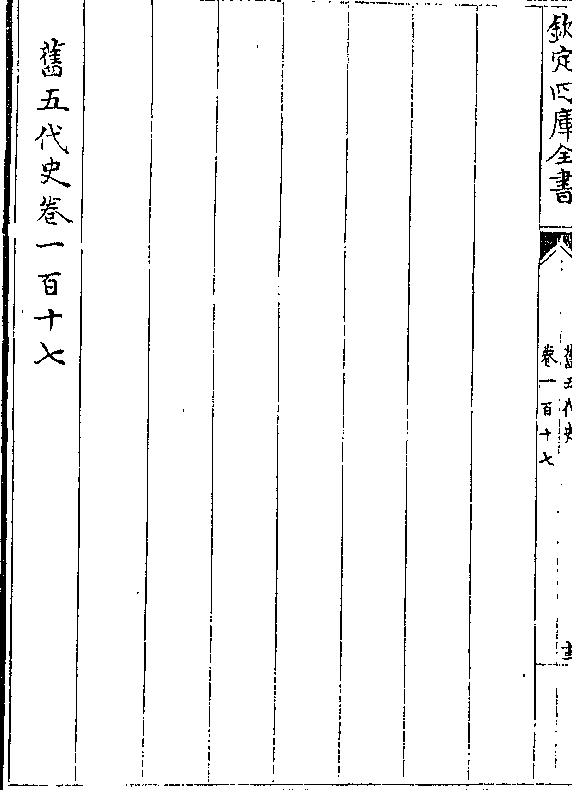 欽定四庫全書
舊五代史
卷一百十七
舊五代史卷一百十七